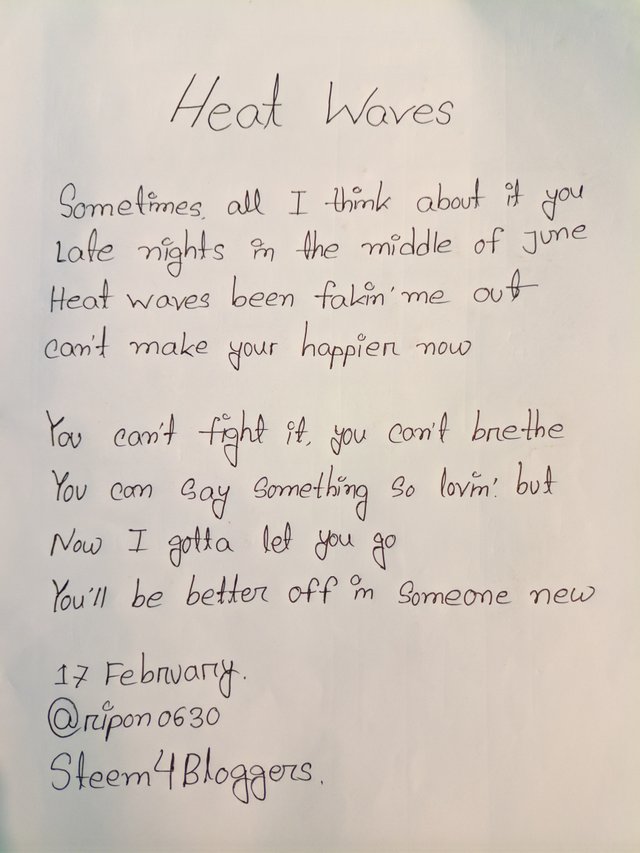 Heat Waves
Sometimes, all I think about it you
Late nights in the middle of June
Heat waves been fakin' me out
can't make your happier now
You can't fight it, you can't brethe
You can say something so lovin' but
Now I gotta let you go
You'll be better off in someone new
17 February.
@ripon0630
Steem4Bloggers.